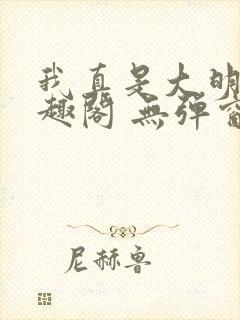 我真是大明
趣阁 無弹窗
尼赫鲁